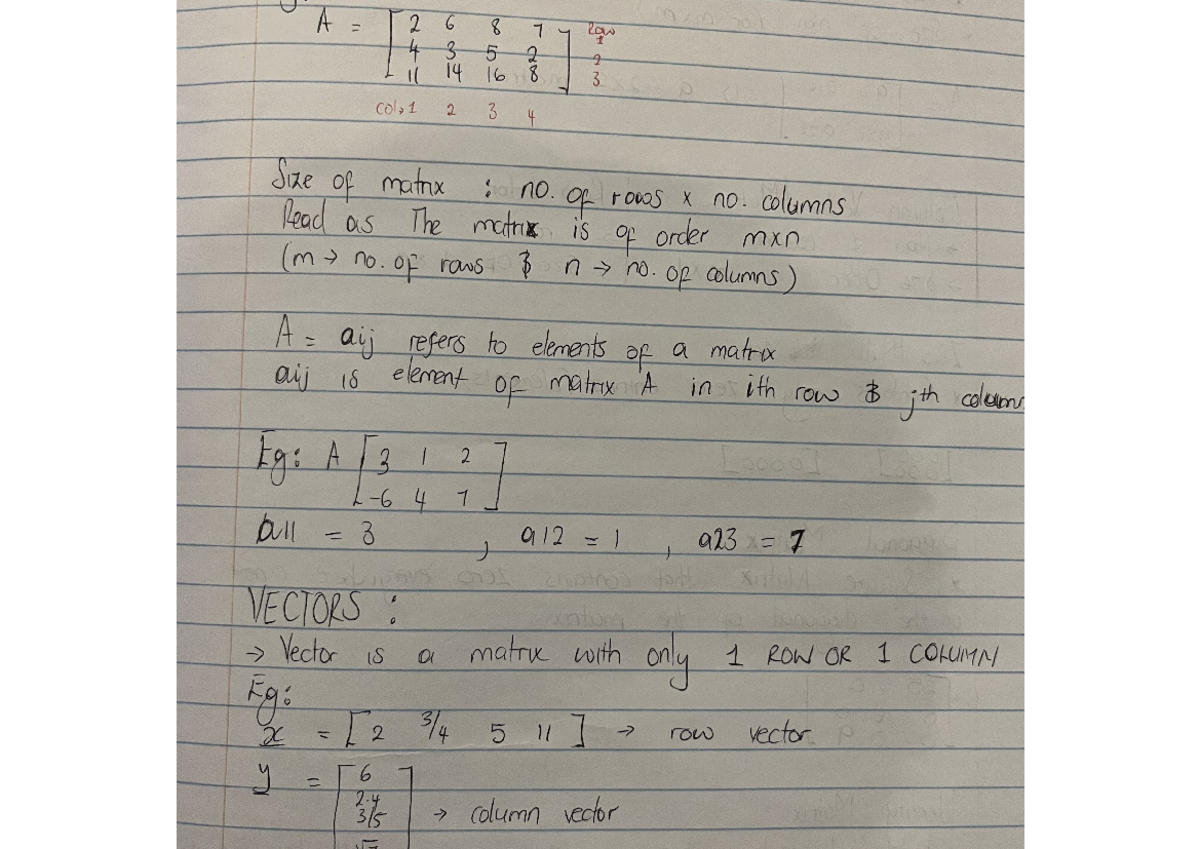 A = [ 2 6 8 7 ] Row 1
4 3 5 2 2
11 14 16 8 3
col, 1 2 3 4
Size of matrix : no. of rows x no. columns
Read as The matrix is of order mxn
(m → no. of rows & n → no. of columns)
A = aij refers to elements of a matrix
aij is element of matrix A in ith row & jth column
Eg: A [ 3 1 2
-6 4 7 ]
a11 = 3 , a12 = 1 , a23 = 7
VECTORS :
→ Vector is a matrix with only 1 ROW OR 1 COLUMN
Eg:
x = [ 2 3/4 5 11 ] → row vector
y = [ 6 ]
2.4
3/5 → column vector